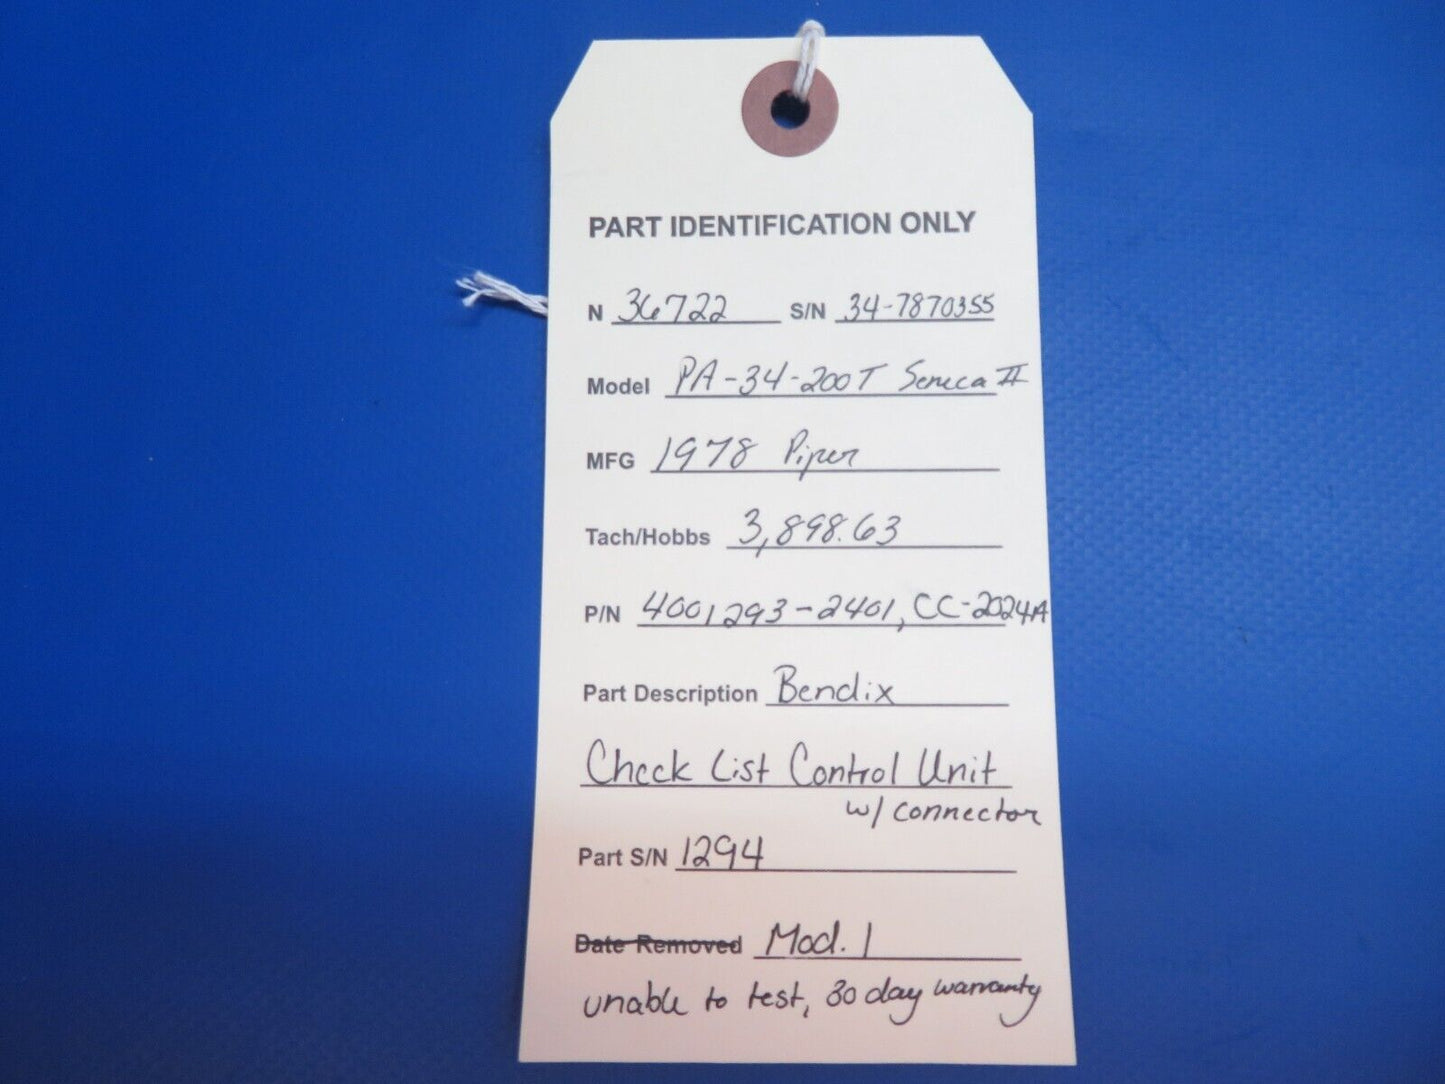 PART IDENTIFICATION ONLY
N 36722 S/N 34-7870355
Model PA-34-200T Seneca II
MFG 1978 Piper
Tach/Hobbs 3,898.63
P/N 4001293-2401, CC-2024A
Part Description Bendix
Check List Control Unit
w/ connector
Part S/N 1294
Date Removed Mod. 1
unable to test, 30 day warranty